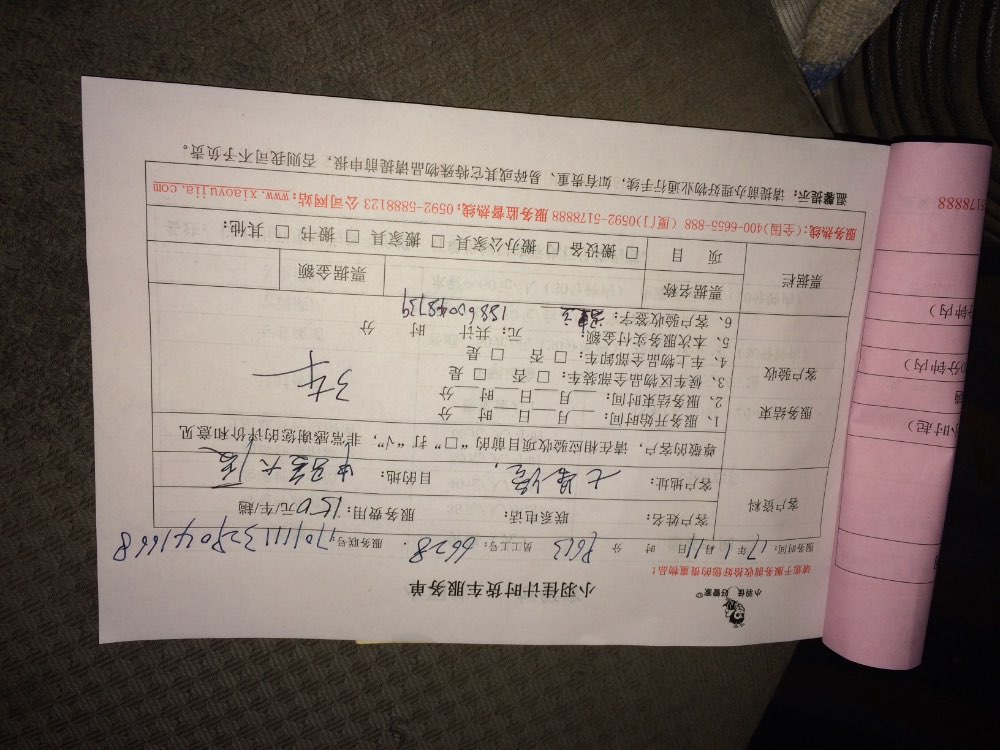 小羽佳 好管家
小羽佳计时货车服务单
请您于服务前收拾好您的贵重物品！
服务时间：17年1月11日 时 分 员工工号：6628. 服务联号
客户资料
客户姓名： 联系电话： 服务费用：150元/车/趟
客户地址： 目的地：
尊敬的客户，请在相应验收项目前的“□”打“√”，非常感谢您的评价和意见
服务结束
客户验收
1、服务开始时间： 月 日 时 分
2、服务结束时间： 月 日 时 分
3、候车区物品全部装车：□ 否 □ 是
4、车上物品全部卸车：□ 否 □ 是
5、本次服务实付金额： 元；共计 时 分
6、客户验收签字： 18860048739
3车
票据栏
票据名称 票据金额
项 目 □ 搬设备 □ 搬办公家具 □ 搬家具 □ 搬书 □ 其他：
服务热线：(全国)400-6655-888（厦门)0592-5178888 服务监督热线：0592-5888123 公司网站：www.xiaoyujia.com
温馨提示：请提前办理好物业通行手续，如有贵重、易碎或其它特殊物品请提前申报，否则我司不予负责。
小时起）
0分钟内）
钟内）
5178888